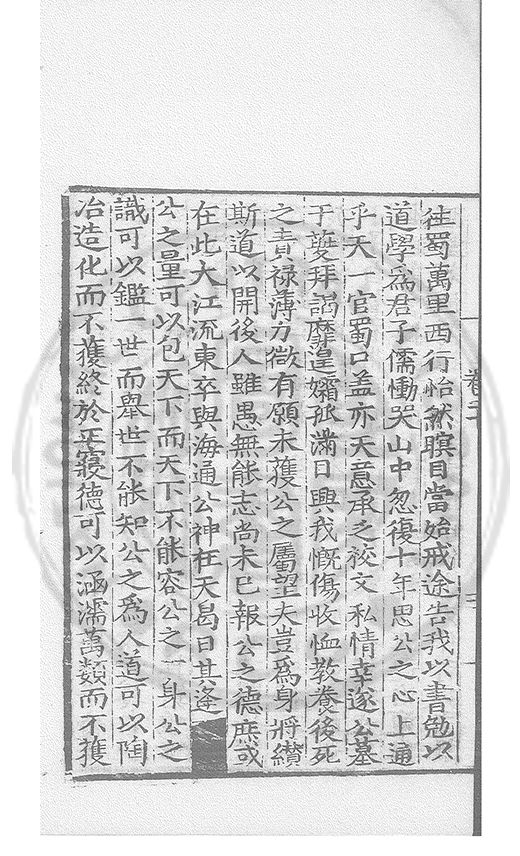 徙蜀萬里西行怡然瞑目當始戒途告我以書勉以
道學爲君子儒慟哭山中忽復十年思公之心上通
乎天一官蜀口盖亦天意承乏校文私情幸遂公墓
于夔拜謁靡遑孀孤滿目興我慨傷收恤教養後死
之責禄薄力微有願未獲公之屬望夫豈爲身將纉
斯道以開後人雖愚無能志尚未已報公之德庶或
在此大江流東卒與海通公神在天曷日其逢
公之量可以包天下而天下不能容公之一身公之
識可以鑑一世而舉世不能知公之爲人道可以陶
冶造化而不獲終於正寢德可以涵濡萬類而不獲